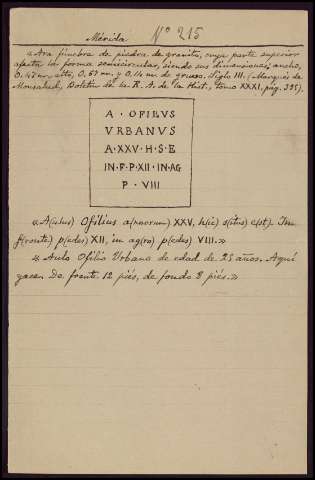 Mérida Nº 215
«Ara fúnebre de piedra de granito, cuya parte superior
afecta la forma semicircular, siendo sus dimensiones: ancho,
0.47 m., alto, 0.57 m. y 0.14 m. de grueso. Siglo III. (Marqués de
Monsalud, Boletín de la R. A. de la Hist., tomo XXXI, pág. 395).
A · OFILIVS
VRBANVS
A · XXV · H · S · E
IN · F · P · XII · IN · AG
P · VIII
«A(ulus) Ofilius a(nnorum) XXV, h(ic) s(itus) e(st). In
f(ronte) p(edes) XII, in ag(ro) p(edes) VIII.»
«Aulo Ofilio Urbano de edad de 25 años. Aquí
yace. De frente 12 piés, de fondo 8 piés.»